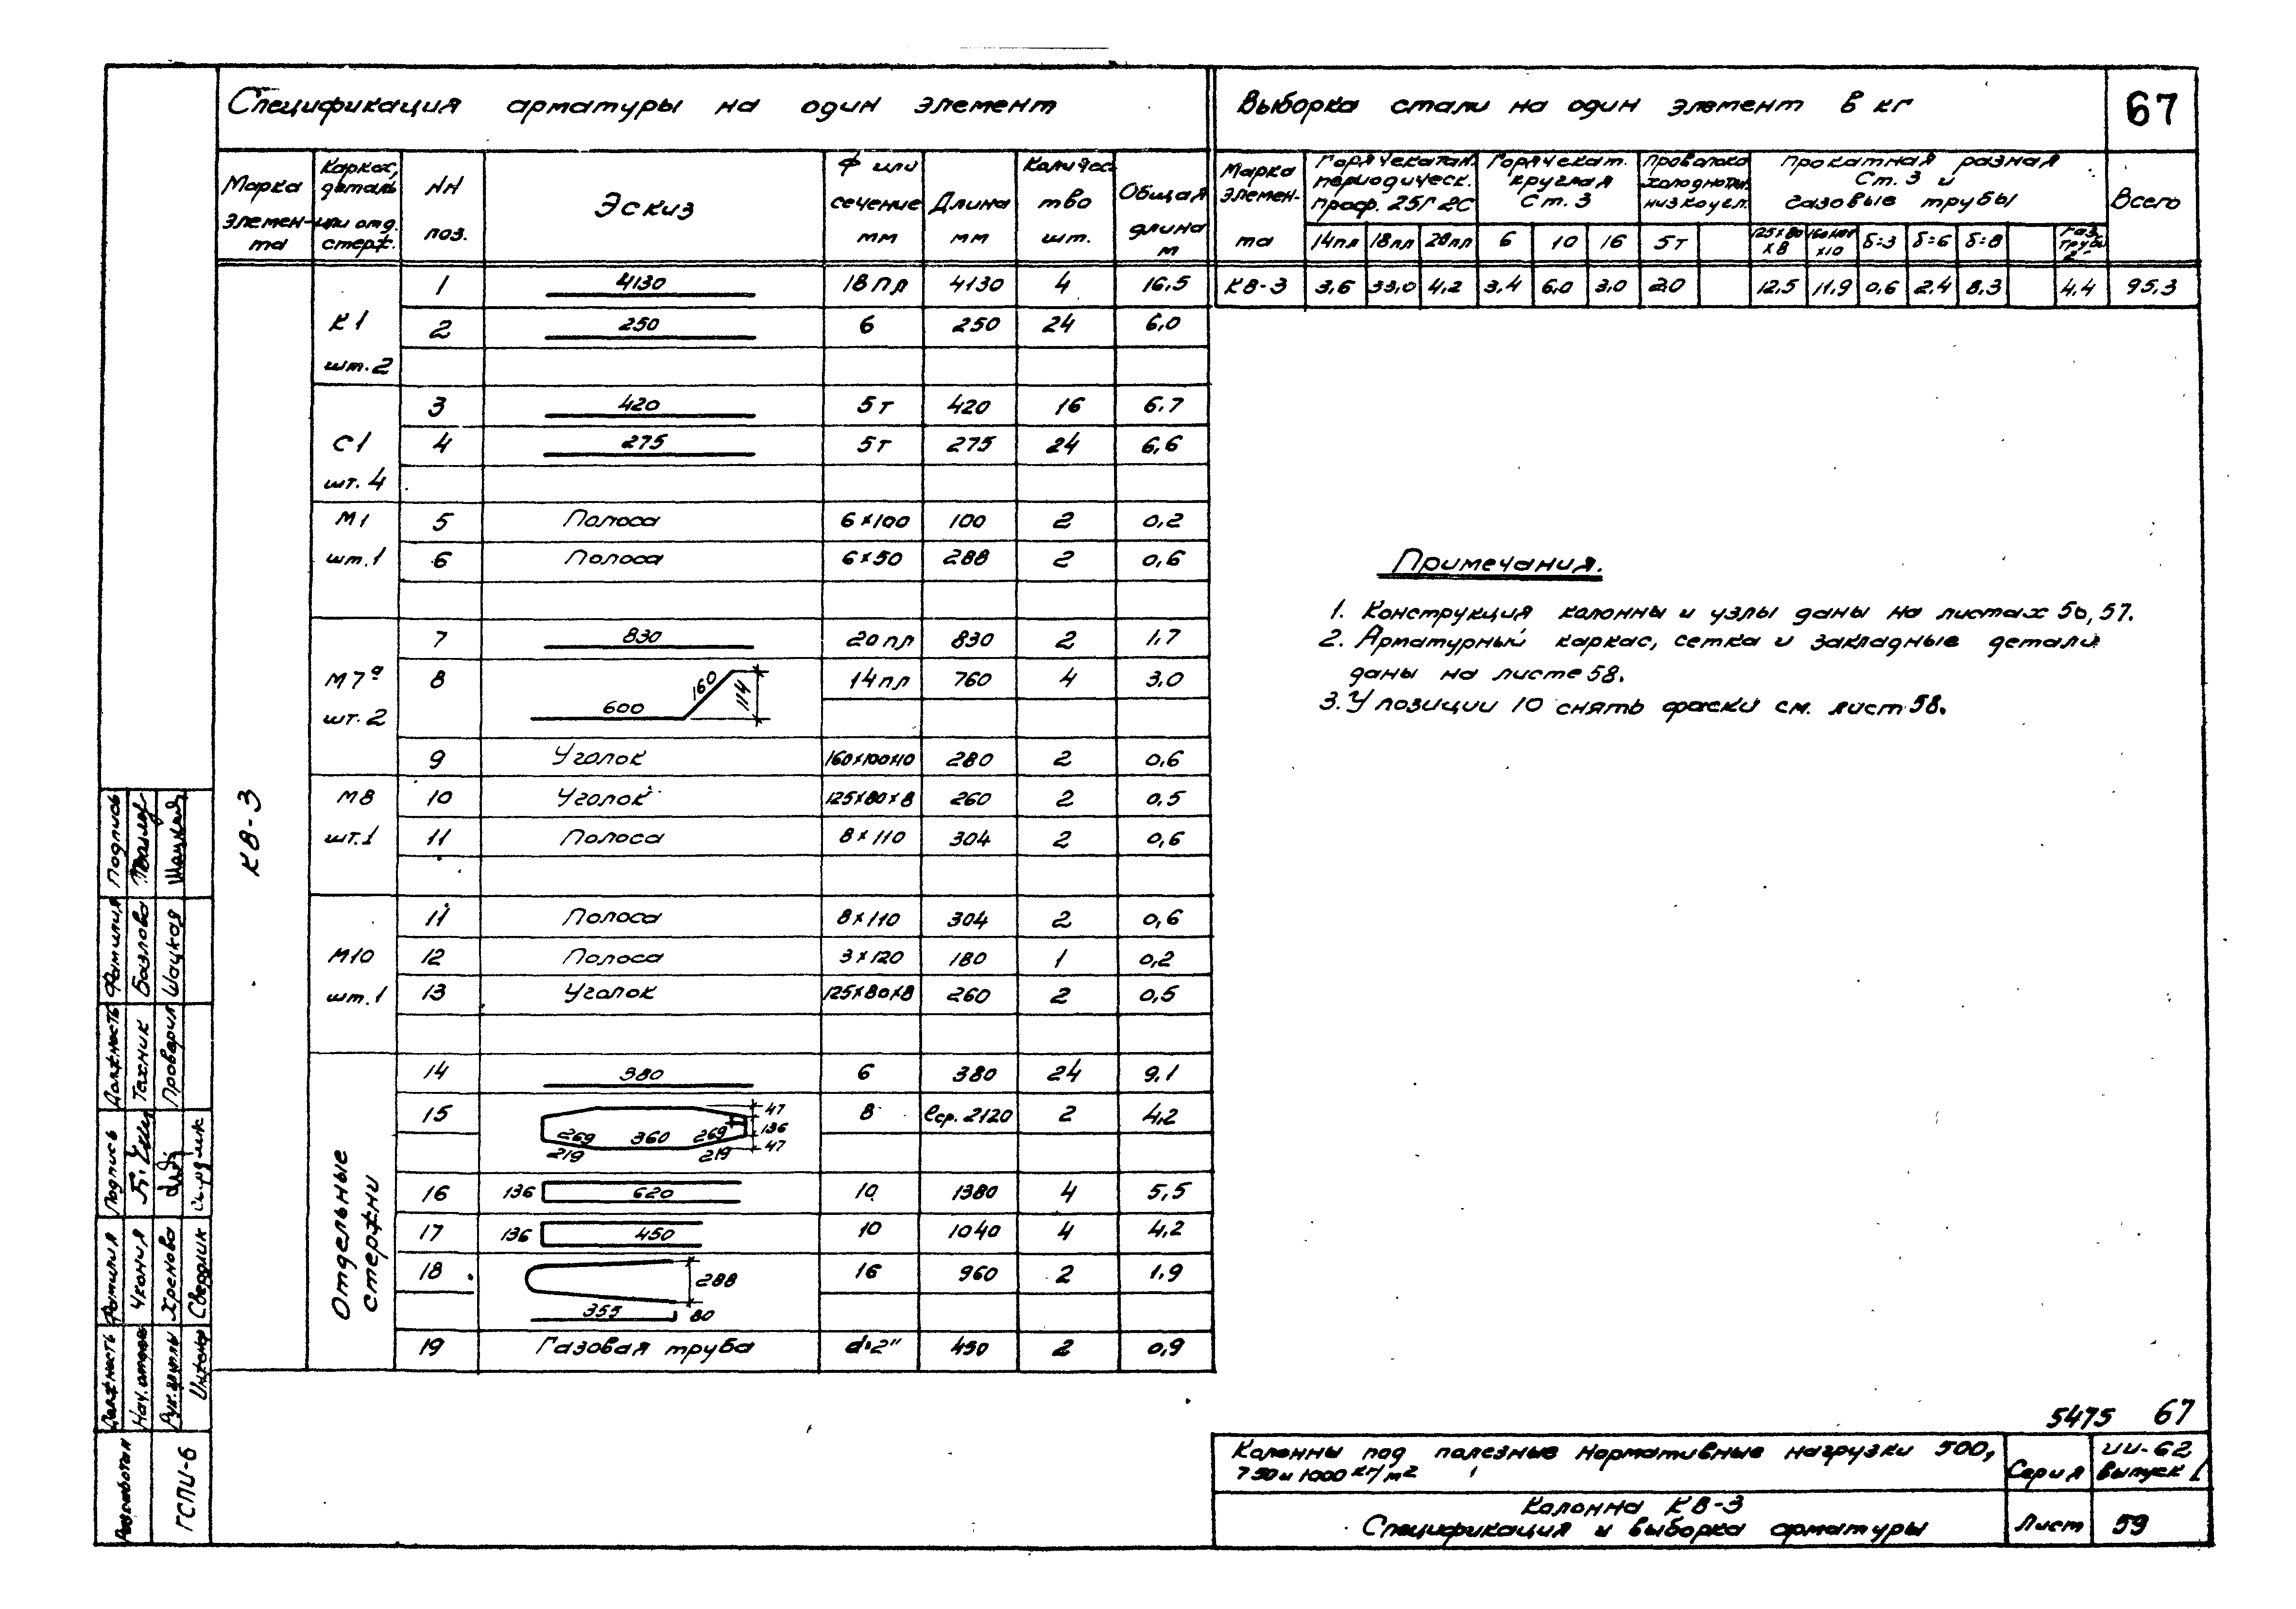 Спецификация арматуры на один элемент
Выборка стали на один элемент в кг
67
Марка элемента | Каркас, деталь или отд. стерж. | NN поз. | Эскиз | Ф или сечение мм | Длина мм | Количество шт. | Общая длина м
КВ-3
К1 шт.2
1 | 4130 | 18пл | 4130 | 4 | 16,5
2 | 250 | 6 | 250 | 24 | 6,0
С1 шт.4
3 | 420 | 5т | 420 | 16 | 6.7
4 | 275 | 5т | 275 | 24 | 6,6
М1 шт.1
5 | Полоса | 6×100 | 100 | 2 | 0,2
6 | Полоса | 6×50 | 288 | 2 | 0,6
М7а шт.2
7 | 830 | 20пл | 830 | 2 | 1,7
8 | 600 160 114 | 14пл | 760 | 4 | 3.0
9 | Уголок | 160×100×10 | 280 | 2 | 0,6
М8 шт.1
10 | Уголок | 125×80×8 | 260 | 2 | 0,5
11 | Полоса | 8×110 | 304 | 2 | 0,6
М10 шт.1
11 | Полоса | 8×110 | 304 | 2 | 0,6
12 | Полоса | 3×120 | 180 | 1 | 0,2
13 | Уголок | 125×80×8 | 260 | 2 | 0,5
Отдельные стержни
14 | 380 | 6 | 380 | 24 | 9.1
15 | 269 360 269 219 219 47 136 47 | 8 | ℓср. 2120 | 2 | 4,2
16 | 136 620 | 10 | 1380 | 4 | 5,5
17 | 136 450 | 10 | 1040 | 4 | 4,2
18 | 288 355 80 | 16 | 960 | 2 | 1.9
19 | Газовая труба | d=2" | 450 | 2 | 0,9
Марка элемента | Горячекатан. периодическ. проф. 25Г2С | Горячекат. круглая Ст. 3 | Проволока холоднотян. низкоугл. | Прокатная разная Ст. 3 и газовые трубы | Всего
14пл | 18пл | 20пл | 6 | 10 | 16 | 5т | 125×80×8 | 160×100×10 | δ=3 | δ=6 | δ=8 | Газ. трубы 2"
КВ-3 | 3,6 | 33,0 | 4,2 | 3,4 | 6,0 | 3,0 | 2,0 | 12,5 | 11,9 | 0,6 | 2,4 | 8,3 | 4,4 | 95,3
Примечания.
1. Конструкция колонны и узлы даны на листах 56, 57.
2. Арматурный каркас, сетка и закладные детали
даны на листе 58.
3. У позиции 10 снять фаски см. лист 58.
5475 67
Колонны под полезные нормативные нагрузки 500,
750 и 1000 кг/м2
Серия
ИИ-62
выпуск I
Колонна КВ-3
Спецификация и выборка арматуры
Лист
59
Должность Фамилия Подпись Должность Фамилия Подпись
Нач. отдела Чкония
Техник Базлова
Рук. группы Хренова
Проверил Шацкая
Инженер Свердлик
Разработан
ГСПИ-6